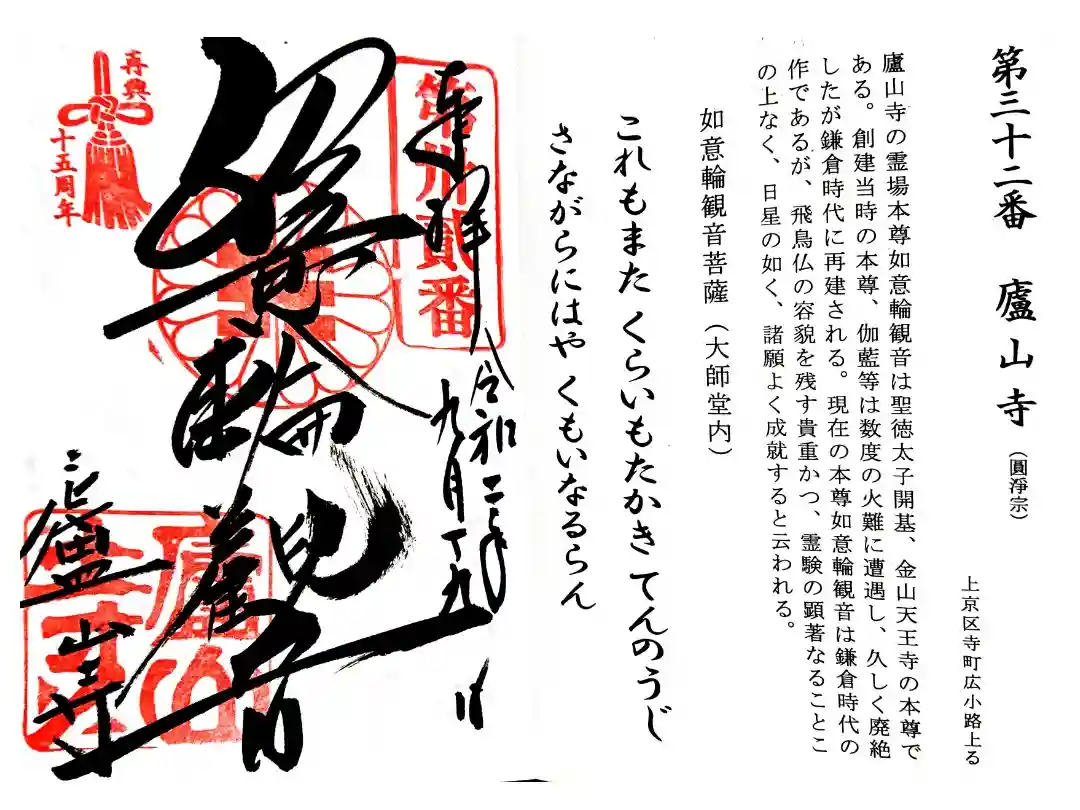 第三十二番 廬山寺（圓淨宗）
上京区寺町広小路上る
廬山寺の霊場本尊如意輪観音は聖徳太子開基、金山天王寺の本尊で
ある。創建当時の本尊、伽藍等は数度の火難に遭遇し、久しく廃絶
したが鎌倉時代に再建される。現在の本尊如意輪観音は鎌倉時代の
作であるが、飛鳥仏の容貌を残す貴重かつ、霊験の顕著なることこ
の上なく、日星の如く、諸願よく成就すると云われる。
如意輪観音菩薩（大師堂内）
これもまた くらいもたかき てんのうじ
さながらにはや くもいなるらん
奉拝
第卅貳番
令和二年
九月十九日
如意輪観音
廬山寺
廬山寺
再興
十五周年